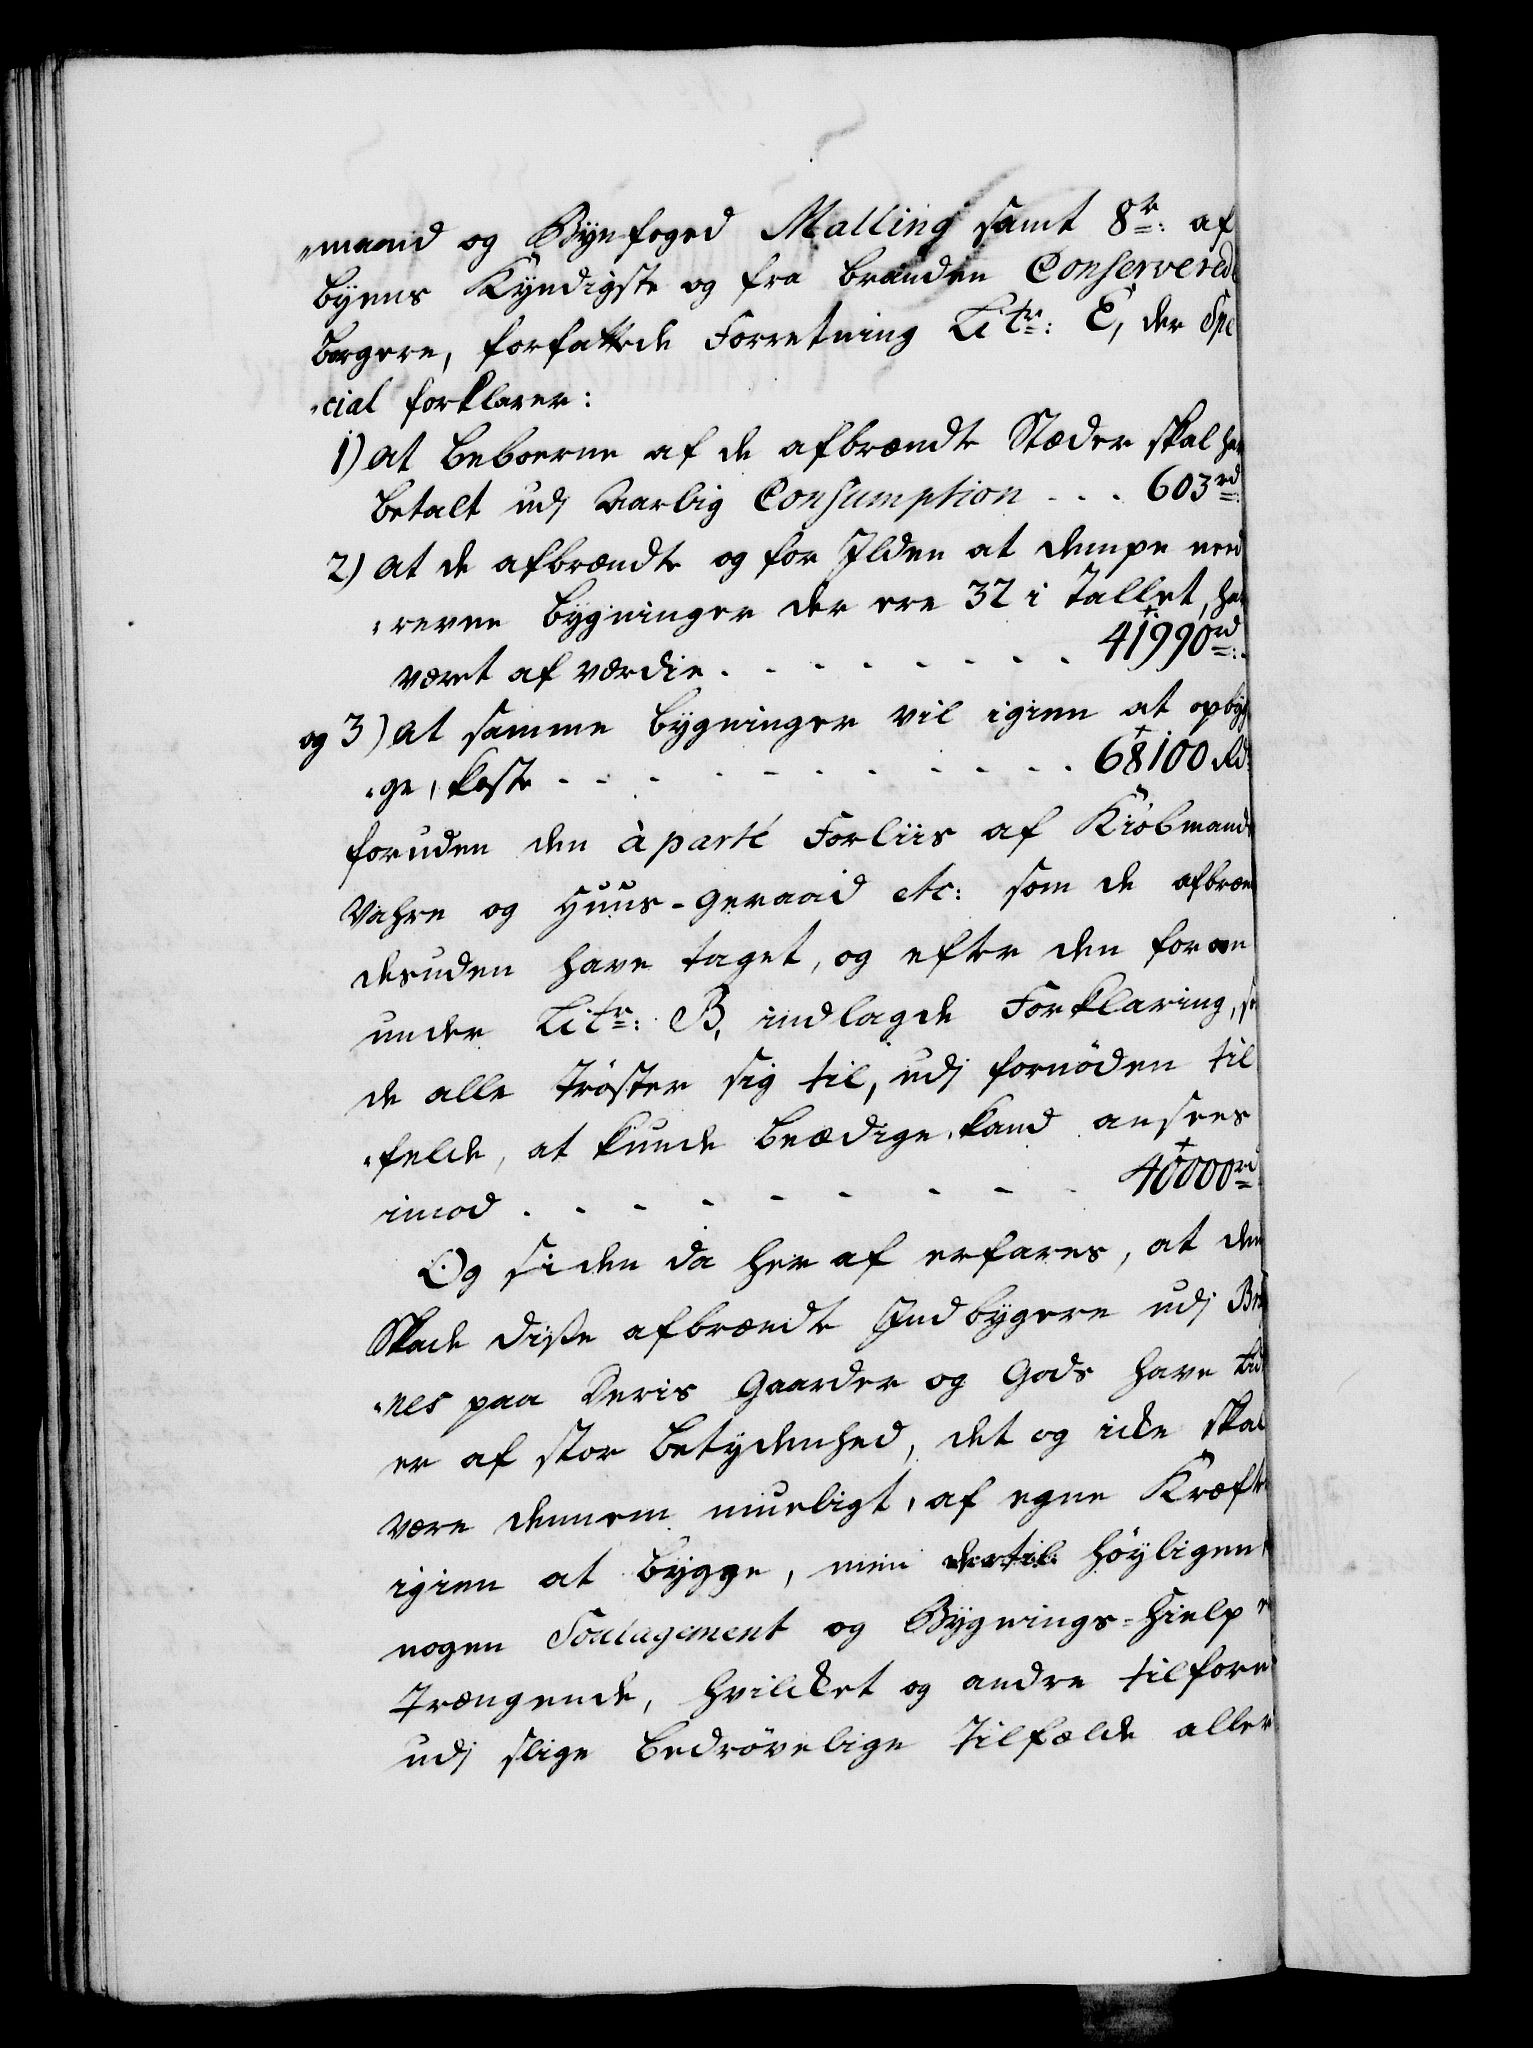 "mand og Byefoged Malling samt 8te: af
Byens Kyndigste og fra branden Conserverede
Borgere, forfattede Forretning Litr: E, der Spe
"cial forklarer:
1) at Beboerne af de afbrændte Stæder skal ha
betalt udj Aarlig Consumption . . . 603rd:
2) at de afbrændte og for Ilden at dempe need
"revne bygninger der ere 32 i Tallet, ha
været af værdie . . . . . . . . 41990rd:
og 3) at samme bygninger vil igien at opbyg
"ge, koste . . . . . . . . . . . 68100 Rd:
foruden den à parte Forliis af Kiöbmands
Vahre og Huus-geraad etc: som de afbræn
desuden have taget, og efter den foran
under Litr: B, indlagde Forklaring, s
de alle tröster sig til, udj fornöden til
"felde, at kunde beædige, kand ansees
imod . . . . . . . . . 40000rd
Og siden da her af erfares, at den
Skade disse afbrændte Indbygere udj Bra
"nes paa Deris Gaarder og Gods have lid
er af stor betydenhed, det og icke skal
være dennem mueligt, af egne Kræfte
igien at bygge, men dertil höyligen
nogen Soulagement og Bygnings-Hielp
trængende, hvilcket og andre tilforn
udj slige bedrövelige Tilfælde aller